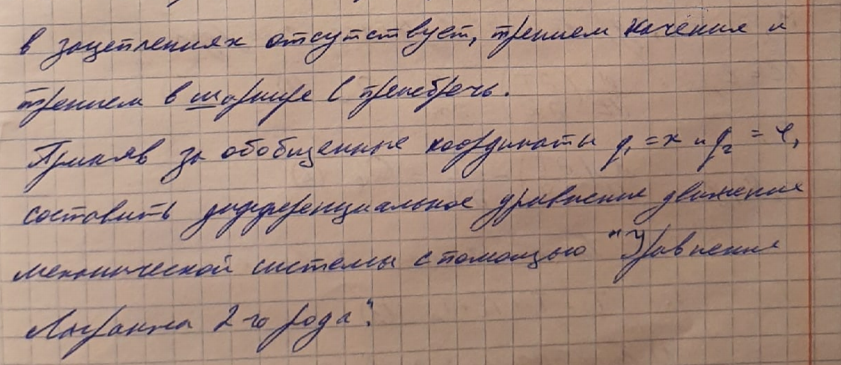 в зацеплениях отсутствует, трением качения и
трением в шарнире C пренебречь.
Приняв за обобщенные координаты q₁ = x и q₂ = φ,
составить дифференциальное уравнение движения
механической системы с помощью "Уравнение
Лагранжа 2-го рода".